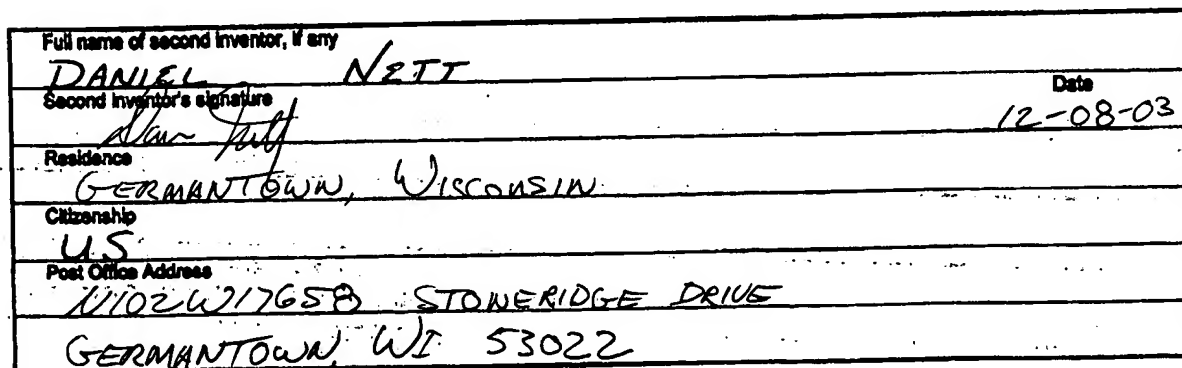 Full name of second inventor, if any
DANIEL NETT
Second inventor's signature
Date
12-08-03
Residence
GERMANTOWN, WISCONSIN
Citizenship
U.S.
Post Office Address
N102W17658 STONERIDGE DRIVE
GERMANTOWN, WI 53022